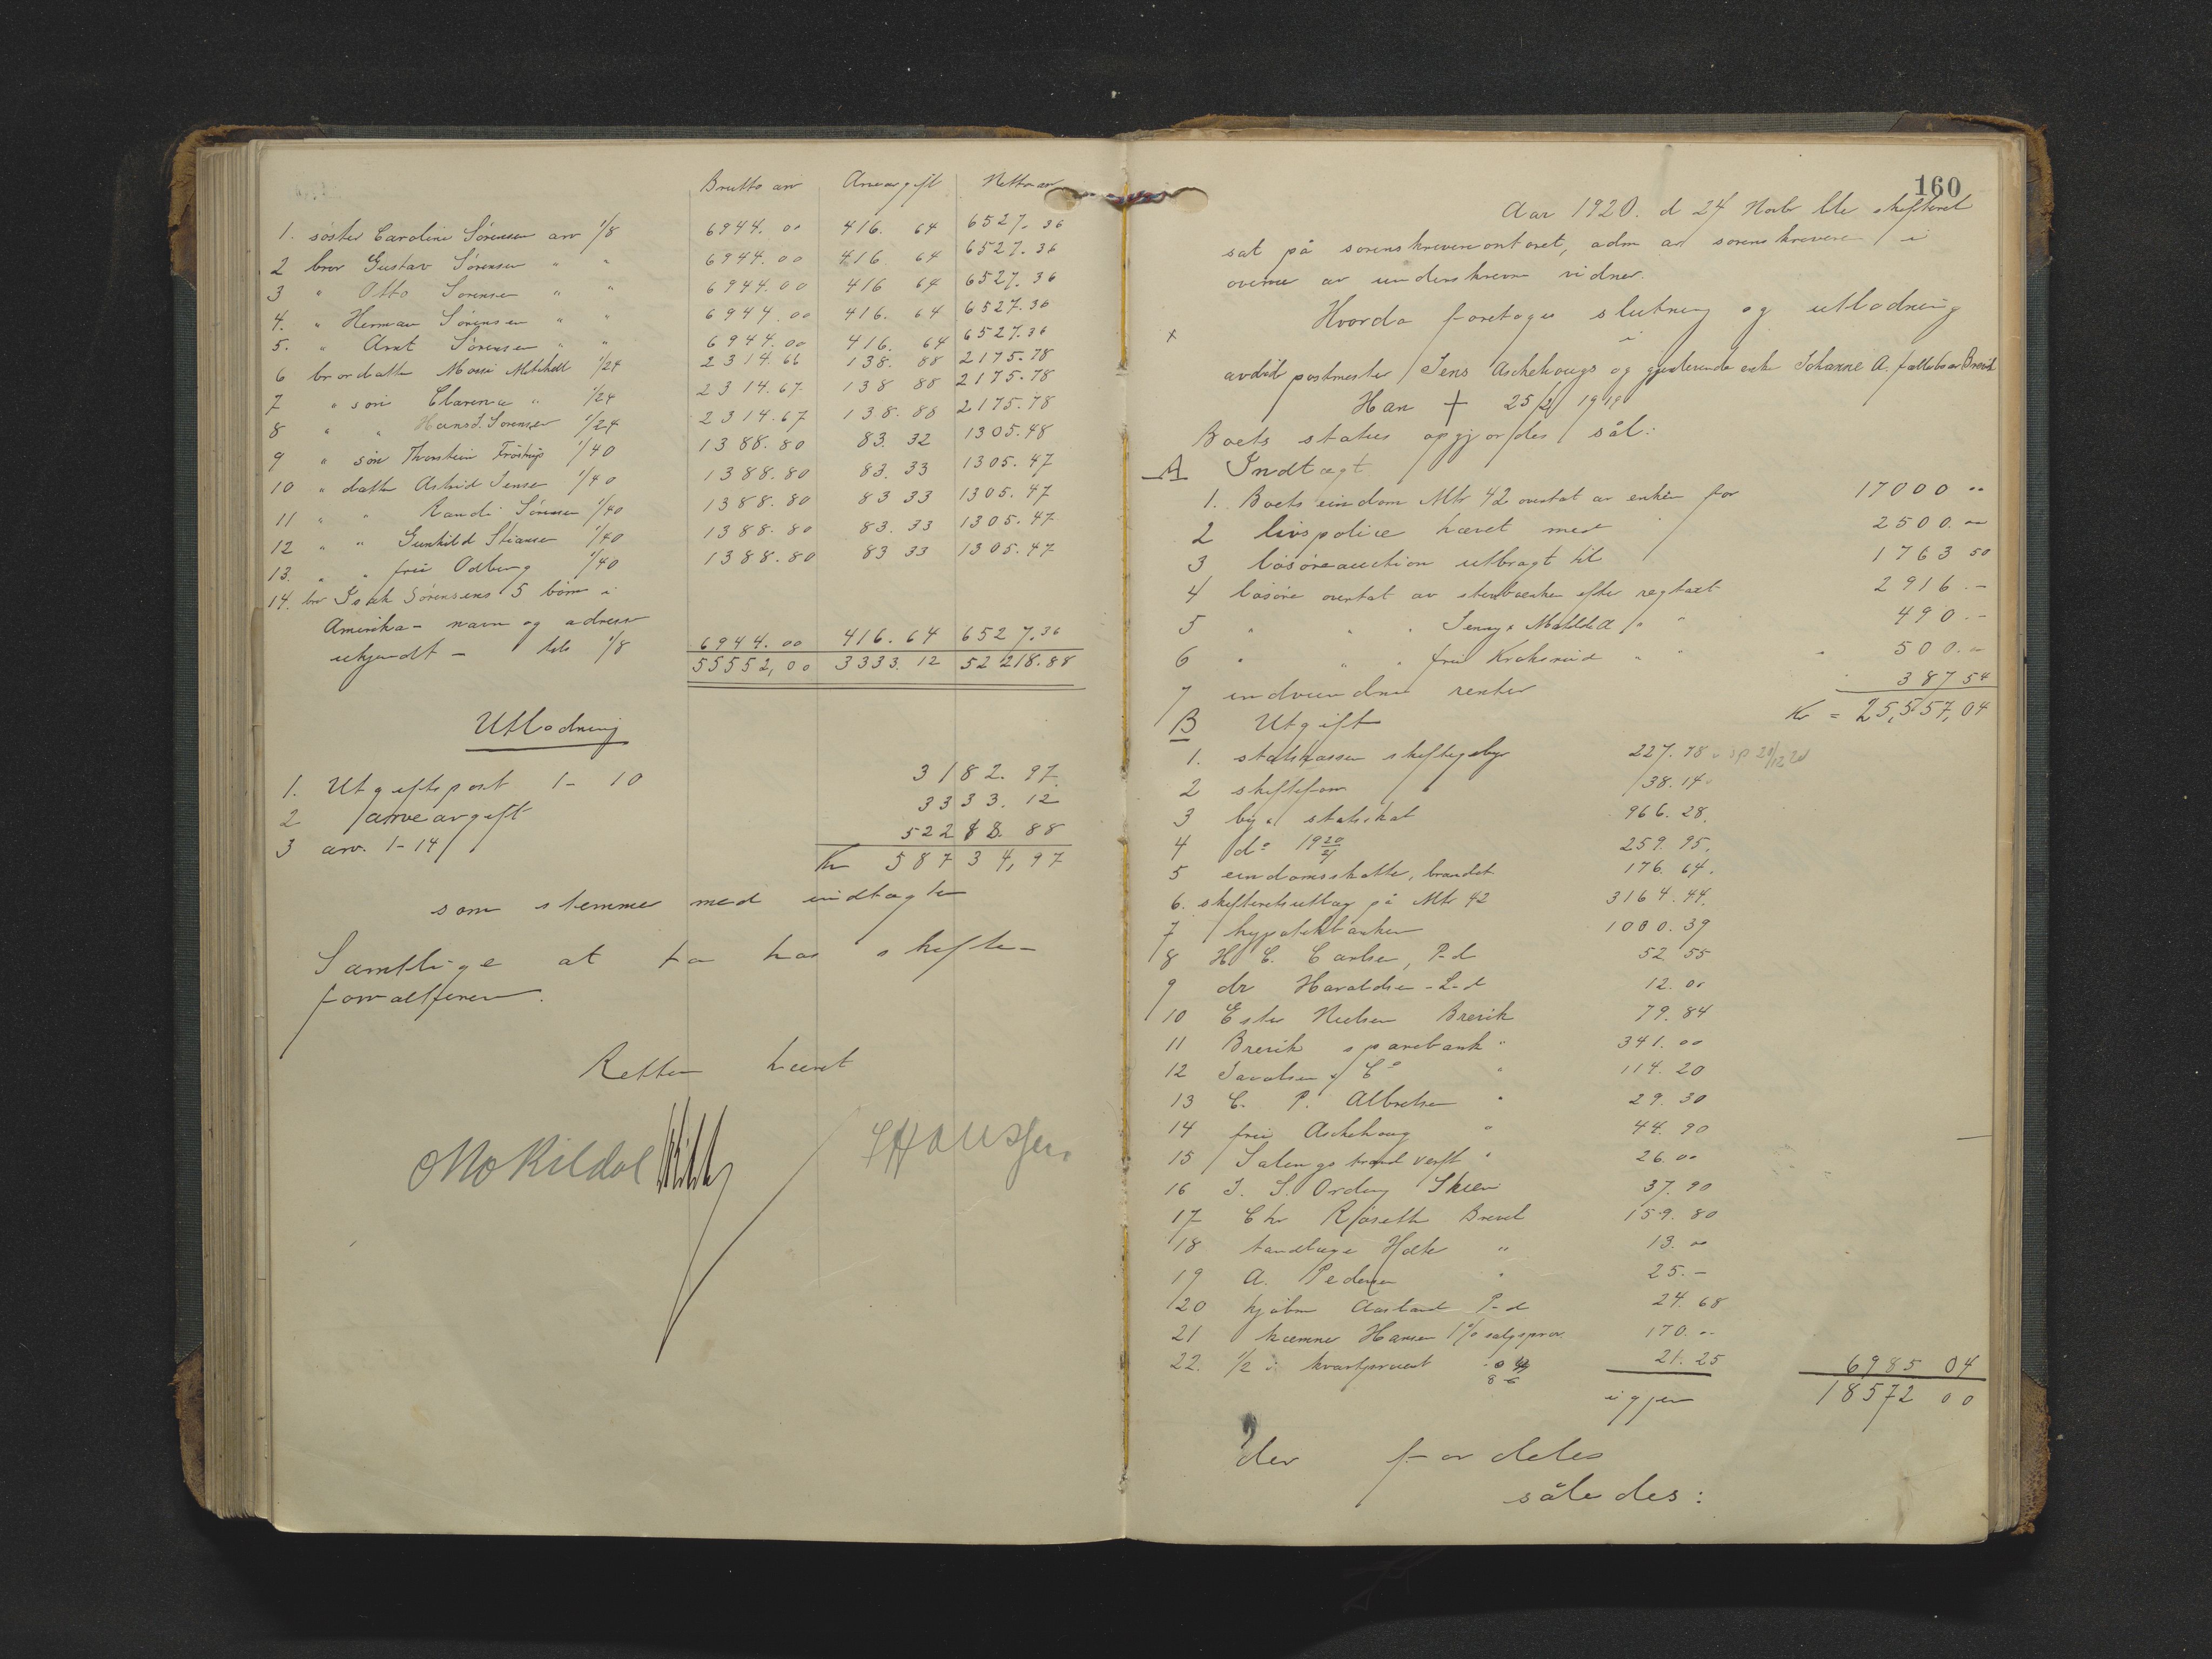 Brutto arv Arveavgift Netto arv
1. søster Caroline Sörensen arv 1/8 6944.00 416.64 6527.36
2 bror Gustav Sörensen " " 6944.00 416 64 6527.36
3 " Otto Sörensen " " 6944.00 416 64 6527.36
4. " Herman Sörensen " " 6944.00 416.64 6527.36
5. " Arnt Sörensen " " 6944.00 416.64 6527.36
6 brordatter Mossi Mitchell 1/24 2314.66 138.88 2175.78
7 " sön Clarence " 1/24 2314.67 138 88 2175.78
8 " " Hans J. Sörensen 1/24 2314.67 138.88 2175.78
9 " sön Thorstein Fröstrup 1/40 1388.80 83.32 1305.48
10 " datter Astrid Jensen 1/40 1388.80 83.33 1305.47
11 " " Randi Sörensen 1/40 1388.80 83 33 1305.47
12 " " Gunhild Stiansen 1/40 1388.80 83.33 1305.47
13. " " frü Odberg 1/40 1388.80 83 33 1305.47
14. bror Isak Sörensens 5 börn i
Amerika - navn og adresse
ukjendt - tils 1/8 6944.00 416.64 6527.36
55552,00 3333.12 52218.88
Utlodning
1. Utgiftspost 1-10 3182.97
2 arveavgift 3333.12
3 arv. 1-14 52218.88
Kr 58734,97
som stemmer med indtægten
Samtlige at ta hos skifte-
forvalteren.
Retten hævet
Otto Kildal
Hansen
160
Aar 1920. d 24 Novb ble skifteret
sat på sorenskriverkontoret, adm av sorenskriveren i
overvær av underskrevne vidner.
Hvorda foretoges slutning og utlodning
x i
avdöd postmester Jens Aschehougs og gjenlevende enke Johanne A. fællesbo av Brevik
Han + 25/2 1919
Boets status opgjordes sål:
A Indtægt
1. Boets eiendom Mtr 42 overtat av enken for 17000 "
2 livspolice hævet med 2500."
3 lösöreauction utbragt til 1763 50
4 lösöre overtat av sterboenken efter regtaxt 2916.-
5 " " " Jenny & Mathilde A " " 490.-
6 " " " frü Kroksneid " " 500.-
7 indvundne renter 387 54
Kr = 25,557,04
B Utgift
1. statskassen skiftegebyr 227.78
2 skifteforv 138.14
3 by & statsskat 966.28.
4 do 1920/21 259.95.
5 eiendomsskatter, brandkt 176.64.
6. skifteretsutlæg på Mtr 42 3164.44.
7 hypotekbanken 1000.39
8 H. C. Carlsen, P-d 52 55
9 dr Haraldsen - L-d 12.00
10 Ester Nielsen Brevik 79.84
11 Brevik sparebank " 341.00
12 Jacobsen & Co " 114.20
13 C. P. Albretsen " 29.30
14 frü Aschehoug " 44.90
15 Salen gs trand verft " 26.00
16 J. S. Ording Skien 37.90
17 Chr Röseth Brevik 159.80
18 tandlæge Holte " 13.00
19 A. Pedersen " 25.-
20 kjöbm Aasland P-d 24.68
21 kæmner Hansen 1% salgsprov. 170."
22. 1/2 i kvartprocent 21.25 6985 04
igjen 18572 00
der fordeles
således: